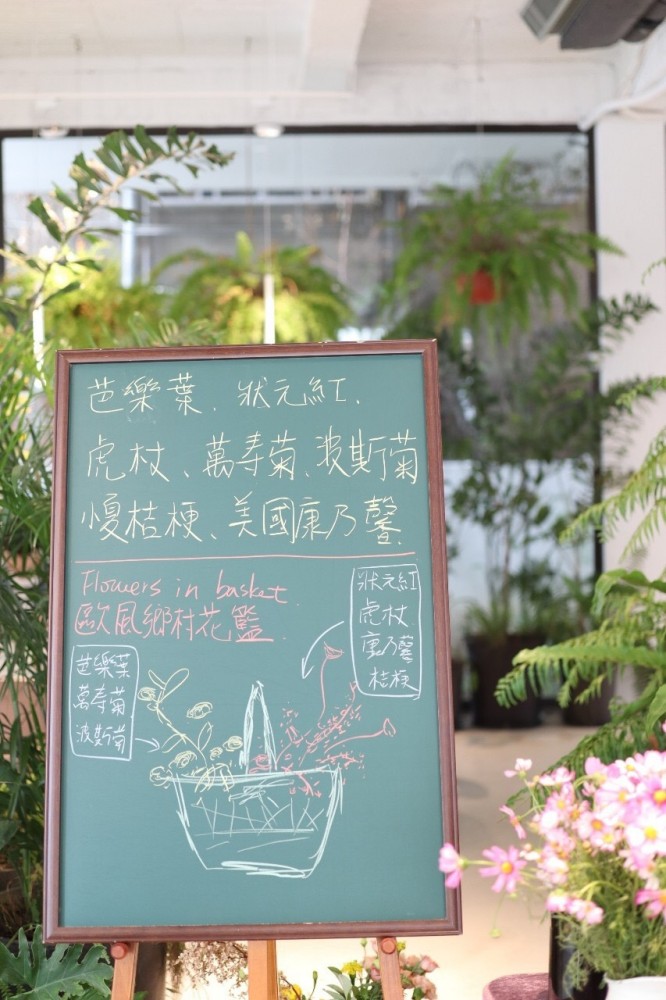 芭樂葉、狀元紅、
虎杖、萬壽菊、波斯菊
慢桔梗、美國康乃馨
Flowers in basket
歐風鄉村花籃
狀元紅
虎杖
康乃馨
桔梗
芭樂葉
萬壽菊
波斯菊